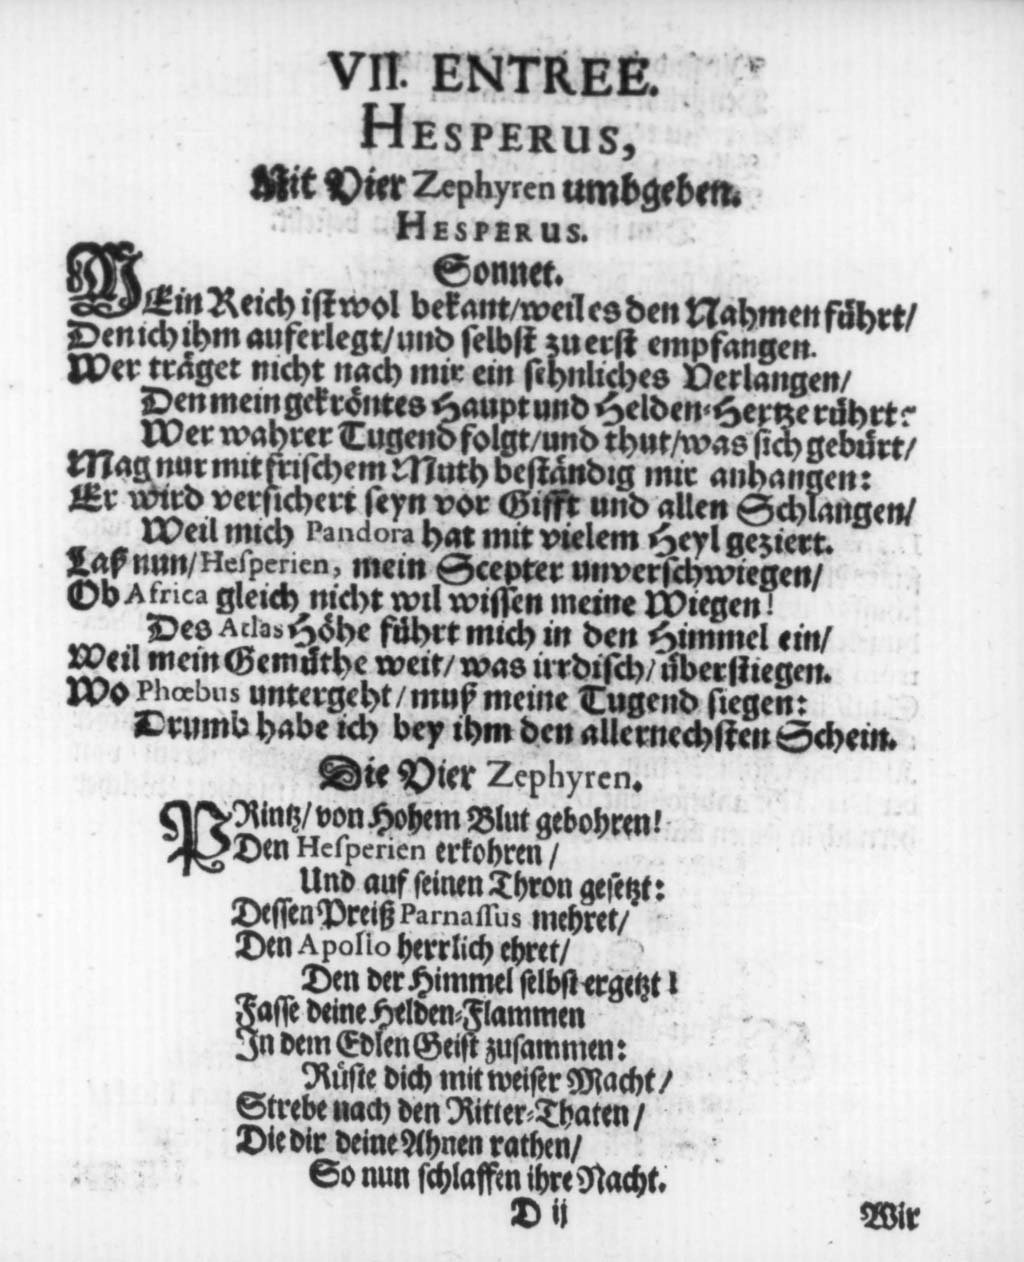 VII. ENTREE.
HESPERUS,
Mit Vier Zephyren umbgeben.
HESPERUS.
Sonnet.
MEin Reich ist wol bekant/weil es den Nahmen führt/
Den ich ihm auferlegt/und selbst zu erst empfangen.
Wer träget nicht nach mir ein sehnliches Verlangen/
Den mein gekröntes Haupt und Helden-Hertze rührt?
Wer wahrer Tugend folgt/und thut/was sich gebürt/
Mag nur mit frischem Muth beständig mir anhangen:
Er wird versichert seyn vor Gifft und allen Schlangen/
Weil mich Pandora hat mit vielem Heyl geziert.
Laß nun/Hesperien, mein Scepter unverschwiegen/
Ob Africa gleich nicht wil wissen meine Wiegen!
Des Atlas Höhe führt mich in den Himmel ein/
Weil mein Gemüthe weit/was irrdisch/überstiegen.
Wo Phœbus untergeht/muß meine Tugend siegen:
Drumb habe ich bey ihm den allernechsten Schein.
Die Vier Zephyren.
PRintz/von Hohem Blut gebohren!
Den Hesperien erkohren/
Und auf seinen Thron gesetzt:
Dessen Preiß Parnassus mehret/
Den Apollo herrlich ehret/
Den der Himmel selbst ergetzt!
Fasse deine Helden-Flammen
In dem Edlen Geist zusammen:
Rüste dich mit weiser Macht/
Strebe nach den Ritter-Thaten/
Die dir deine Ahnen rathen/
So nun schlaffen ihre Nacht.
D ij
Wir